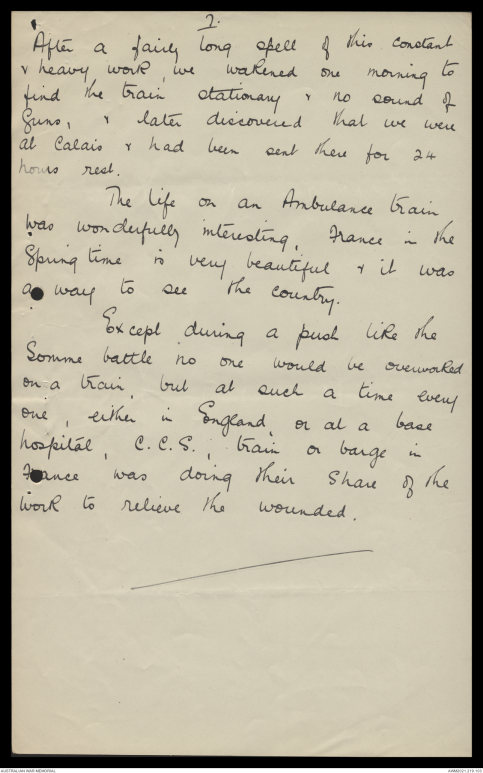 7.
After a fairly long spell of this constant
& heavy work, we wakened one morning to
find the train stationary & no sound of
Guns, & later discovered that we were
at Calais & had been sent there for 24
hours rest.
The life on an Ambulance train
was wonderfully interesting, France in the
Spring time is very beautiful & it was
a way to see the country.
Except during a push like the
Somme battle no one would be overworked
on a train, but at such a time every
one, either in England, or at a base
hospital, C.C.S., train or barge in
France was doing their share of the
work to relieve the wounded.
AUSTRALIAN WAR MEMORIAL